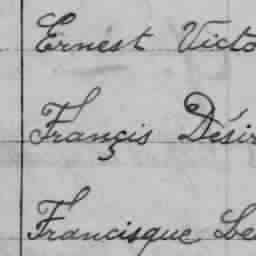 Ernest Victo
Françis Désir
Francisque Le